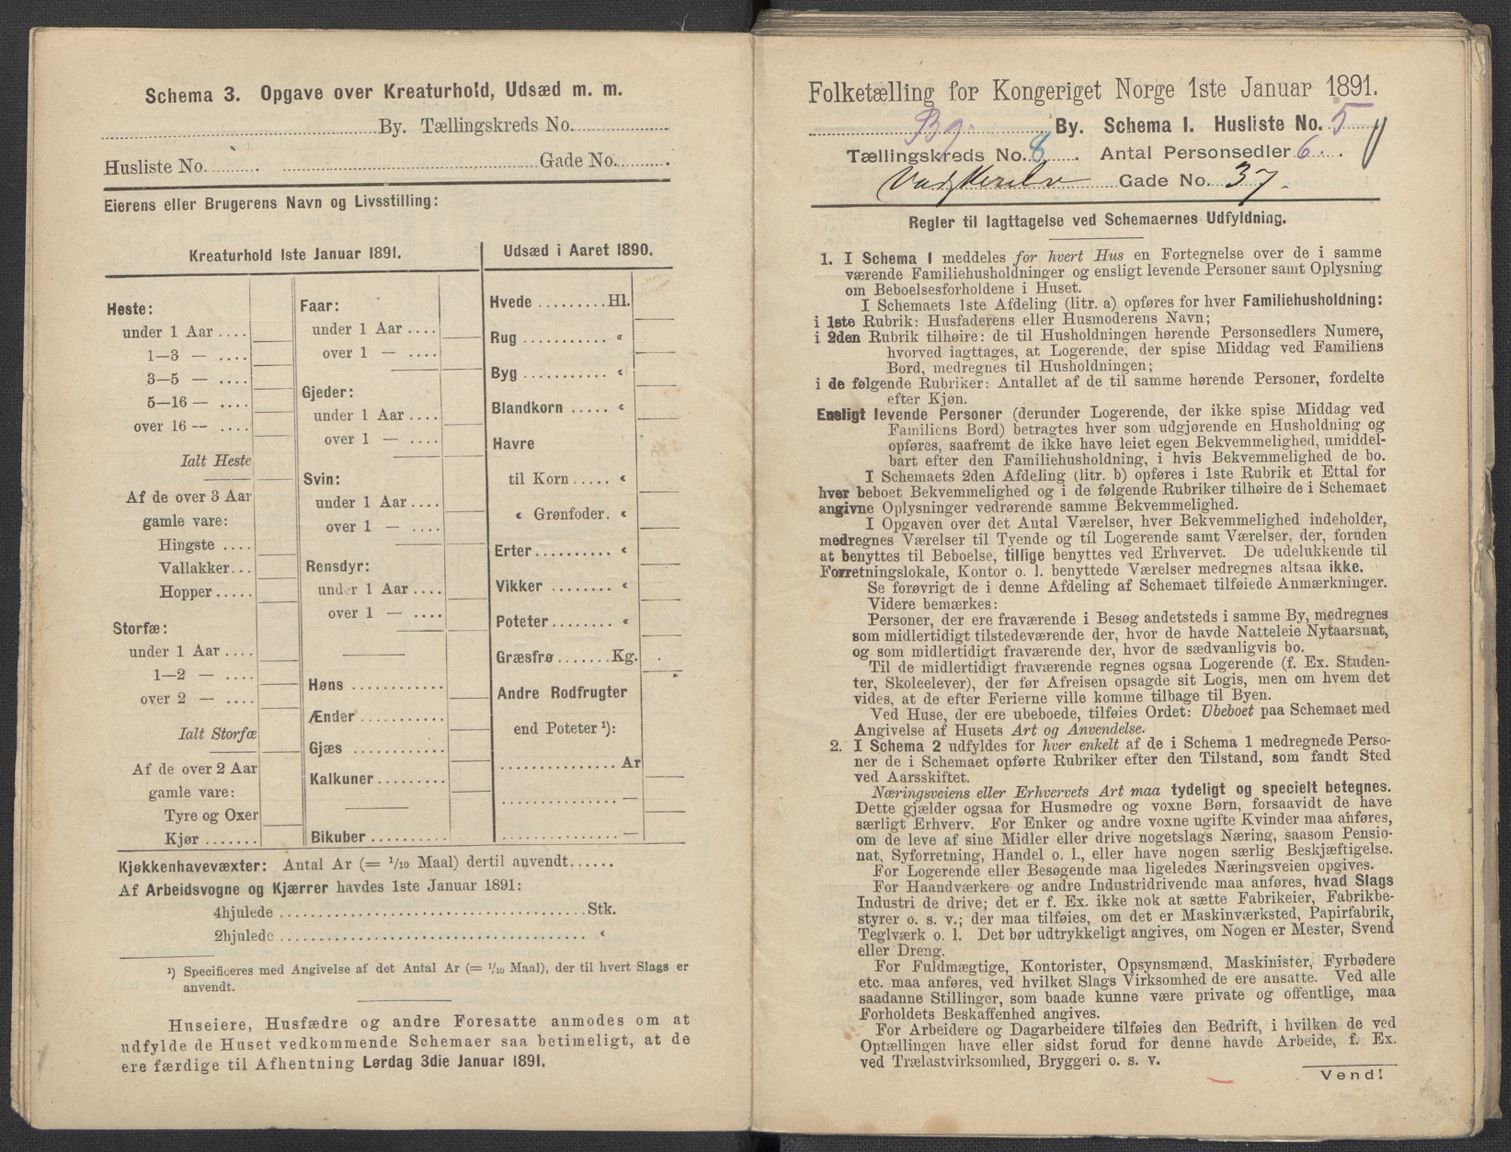 Schema 3. Opgave over Kreaturhold, Udsæd m. m.
By. Tællingskreds No.
Husliste No. Gade No.
Eierens eller Brugerens Navn og Livsstilling:
Kreaturhold 1ste Januar 1891.
Heste:
under 1 Aar ....
1—3 — ....
3—5 — ....
5—16 — ....
over 16 — ....
Ialt Heste
Af de over 3 Aar
gamle vare:
Hingste ....
Vallakker...
Hopper.....
Storfæ:
under 1 Aar ....
1—2 — ....
over 2 — ....
Ialt Storfæ
Af de over 2 Aar
gamle vare:
Tyre og Oxer
Kjør .......
Faar:
under 1 Aar ....
over 1 — ....
Gjeder:
under 1 Aar ....
over 1 — ....
Svin:
under 1 Aar ....
over 1 — ....
Rensdyr:
under 1 Aar ....
over 1 — ....
Høns ............
Ænder ...........
Gjæs ............
Kalkuner.........
Bikuber ..........
Udsæd i Aaret 1890.
Hvede .........Hl.
Rug ........... «
Byg ........... «
Blandkorn ..... «
Havre
til Korn..... «
« Grønfoder. «
Erter.......... «
Vikker ........ «
Poteter........ «
Græsfrø .......Kg.
Andre Rodfrugter
end Poteter ¹):
............... Ar
............... —
............... —
Kjøkkenhavevæxter: Antal Ar (= 1/10 Maal) dertil anvendt......
Af Arbeidsvogne og Kjærrer havdes 1ste Januar 1891:
4hjulede ......................................Stk.
2hjulede ...................................... «
¹) Specificeres med Angivelse af det Antal Ar (= 1/10 Maal), der til hvert Slags er
anvendt.
Huseiere, Husfædre og andre Foresatte anmodes om at
udfylde de Huset vedkommende Schemaer saa betimeligt, at de
ere færdige til Afhentning Lørdag 3die Januar 1891.
Folketælling for Kongeriget Norge 1ste Januar 1891.
Bg. By. Schema 1. Husliste No. 5
Tællingskreds No. 8. Antal Personsedler 6.
Gade No. 37.
Regler til Iagttagelse ved Schemaernes Udfyldning.
1. I Schema 1 meddeles for hvert Hus en Fortegnelse over de i samme
værende Familiehusholdninger og ensligt levende Personer samt Oplysning
om Beboelsesforholdene i Huset.
I Schemaets 1ste Afdeling (litr. a) opføres for hver Familiehusholdning:
i 1ste Rubrik: Husfaderens eller Husmoderens Navn;
i 2den Rubrik tilhøire: de til Husholdningen hørende Personsedlers Numere,
hvorved iagttages, at Logerende, der spise Middag ved Familiens
Bord, medregnes til Husholdningen;
i de følgende Rubriker: Antallet af de til samme hørende Personer, fordelte
efter Kjøn.
Ensligt levende Personer (derunder Logerende, der ikke spise Middag ved
Familiens Bord) betragtes hver som udgjørende en Husholdning og
opføres, saafremt de ikke have leiet egen Bekvemmelighed, umiddel-
bart efter den Familiehusholdning, i hvis Bekvemmelighed de bo.
I Schemaets 2den Afdeling (litr. b) opføres i 1ste Rubrik et Ettal for
hver beboet Bekvemmelighed og i de følgende Rubriker tilhøire de i Schemaet
angivne Oplysninger vedrørende samme Bekvemmelighed.
I Opgaven over det Antal Værelser, hver Bekvemmelighed indeholder,
medregnes Værelser til Tyende og til Logerende samt Værelser, der, foruden
at benyttes til Beboelse, tillige benyttes ved Erhvervet. De udelukkende til
Forretningslokale, Kontor o. l. benyttede Værelser medregnes altsaa ikke.
Se forøvrigt de i denne Afdeling af Schemaet tilføiede Anmærkninger.
Videre bemærkes:
Personer, der ere fraværende i Besøg andetsteds i samme By, medregnes
som midlertidigt tilstedeværende der, hvor de havde Natteleie Nytaarsnat,
og som midlertidigt fraværende der, hvor de sædvanligvis bo.
Til de midlertidigt fraværende regnes ogsaa Logerende (f. Ex. Studen-
ter, Skoleelever), der før Afreisen opsagde sit Logis, men om hvem det
vides, at de efter Ferierne ville komme tilbage til Byen.
Ved Huse, der ere ubeboede, tilføies Ordet: Ubeboet paa Schemaet med
Angivelse af Husets Art og Anvendelse.
2. I Schema 2 udfyldes for hver enkelt af de i Schema 1 medregnede Perso-
ner de i Schemaet opførte Rubriker efter den Tilstand, som fandt Sted
ved Aarsskiftet.
Næringsveiens eller Erhvervets Art maa tydeligt og specielt betegnes.
Dette gjælder ogsaa for Husmødre og voxne Børn, forsaavidt de have
særligt Erhverv. For Enker og andre voxne ugifte Kvinder maa anføres,
om de leve af sine Midler eller drive nogetslags Næring, saasom Pensio-
nat, Syforretning, Handel o. l., eller have nogen særlig Beskjæftigelse.
For Logerende eller Besøgende maa ligeledes Næringsveien opgives.
For Haandværkere og andre Industridrivende maa anføres, hvad Slags
Industri de drive; det er f. Ex. ikke nok at sætte Fabrikeier, Fabrikbe-
styrer o. s. v.; der maa tilføies, om det er Maskinværksted, Papirfabrik,
Teglværk o. l. Det bør udtrykkeligt angives, om Nogen er Mester, Svend
eller Dreng.
For Fuldmægtige, Kontorister, Opsynsmænd, Maskinister, Fyrbødere
etc. maa anføres, ved hvilket Slags Virksomhed de ere ansatte. Ved alle
saadanne Stillinger, som baade kunne være private og offentlige, maa
Forholdets Beskaffenhed angives.
For Arbeidere og Dagarbeidere tilføies den Bedrift, i hvilken de ved
Optællingen have eller sidst forud for denne havde Arbeide, f. Ex.
ved Trælastvirksomhed, Bryggeri o. s. v.
Vend!